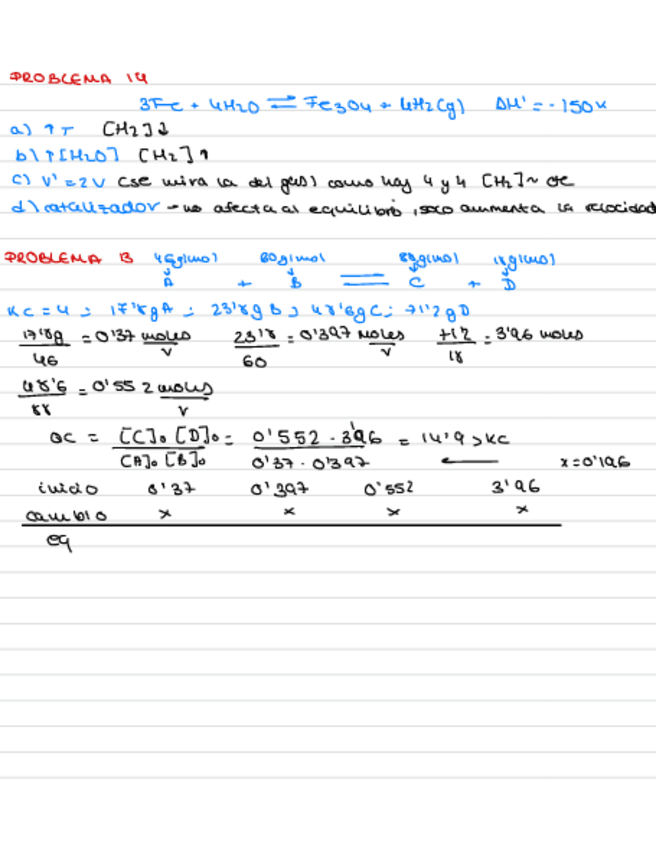 PROBLEMA 14
3Fe + 4H2O ⇌ Fe3O4 + 4H2(g) ΔH' = -150K
a) ↑T [H2]↓
b) ↑[H2O] [H2]↑
c) V' = 2V (se mira la del gas) como hay 4 y 4 [H2] ~ cte
d) catalizador - no afecta al equilibrio, solo aumenta la velocidad
PROBLEMA 13 46g/mol 60g/mol 88g/mol 18g/mol
A + B = C + D
KC = 4 ; 17'8gA ; 23'8gB ; 48'6gC ; 71'2gD
17'8g/46 = 0'37 moles/V 23'8/60 = 0'397 moles/V 71'2/18 = 3'96 moles
48'6/88 = 0'552 moles/V
QC = [C]o [D]o / [A]o [B]o = 0'552 · 3'96 / 0'37 · 0'397 = 14'9 > KC ← x = 0'196
inicio 0'37 0'397 0'552 3'96
cambio x x x x
eq